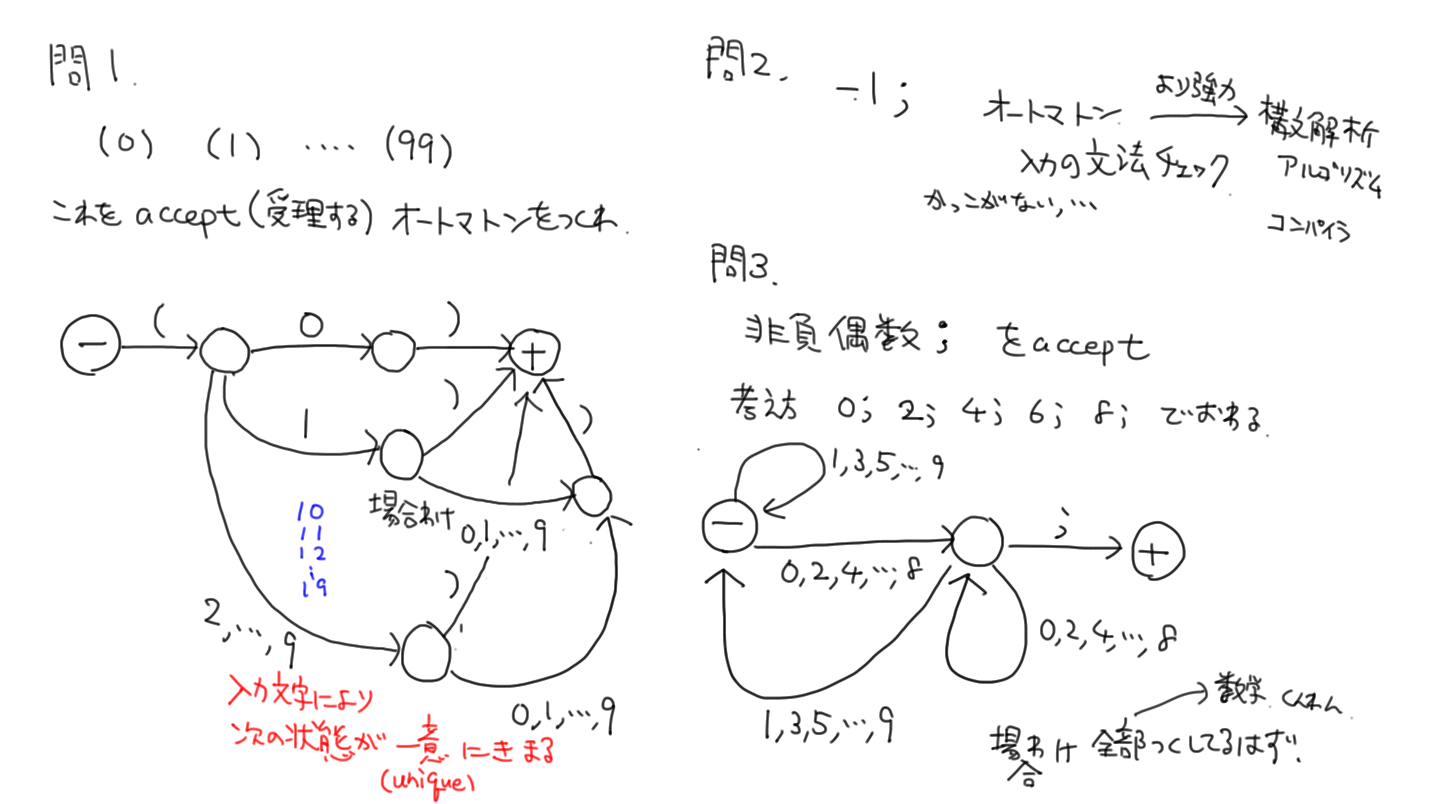 問1.
(0) (1) ‥‥ (99)
これを accept(受理する) オートマトンをつくれ.
− ( 0 ) +
1 )
)
場合わけ 0,1,…,9
10
11
12
19
2,…,9
)
0,1,…,9
入力文字により
次の状態が 一意 にきまる
(unique)
問2.
-1;
オートマトン より強力 構文解析
入力の文法チェック アルゴリズム
かっこがない,… コンパイラ
問3.
非負偶数; をaccept
考え方 0; 2; 4; 6; 8; でおわる.
1,3,5,…,9
− ; +
0,2,4,…,8
0,2,4,…,8
1,3,5,…,9
数学 くんれん
場合わけ 全部つくしてるはず.